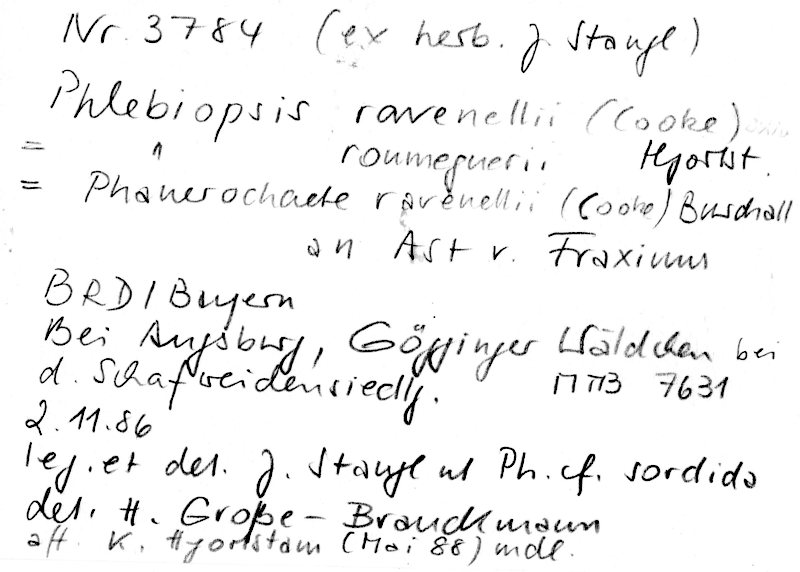 Nr. 3784 (ex herb. J. Stangl)
Phlebiopsis ravenellii (Cooke)
= " roumeguerii Hjortst.
= Phanerochaete ravenellii (Cooke) Burdsall
an Ast v. Fraxinus
BRD / Bayern
Bei Augsburg, Gögginger Wäldchen bei
d. Schafweidensiedlg. MTB 7631
2.11.86
leg. et det. J. Stangl ut Ph. cf. sordida
det. H. Große-Brauckmann
aff. K. Hjortstam (Mai 88) mdl.